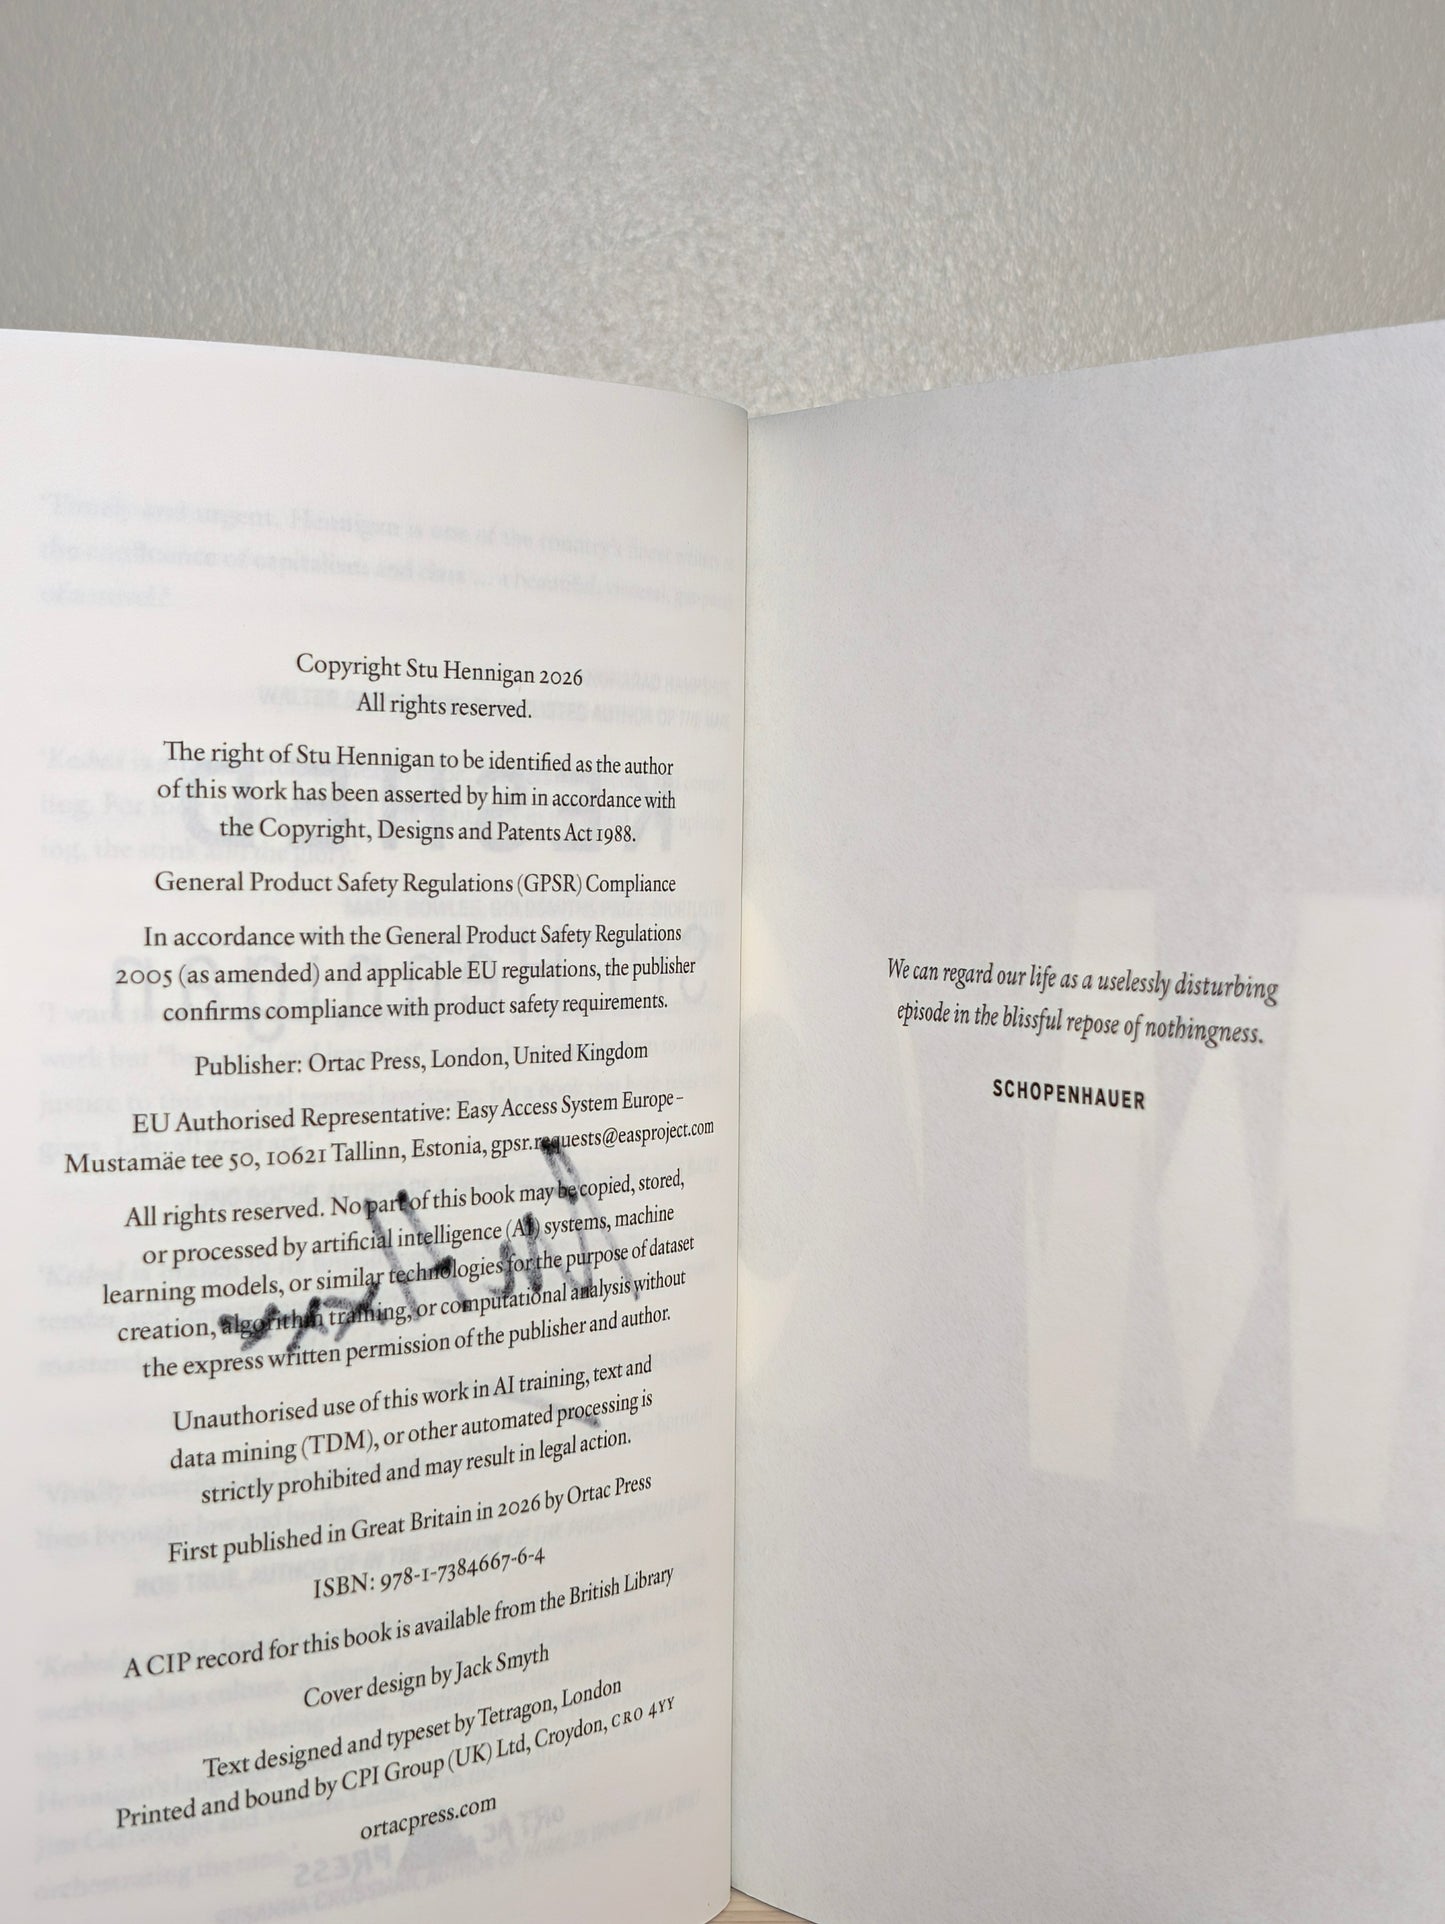 Copyright Stu Hennigan 2026
All rights reserved.
The right of Stu Hennigan to be identified as the author
of this work has been asserted by him in accordance with
the Copyright, Designs and Patents Act 1988.
General Product Safety Regulations (GPSR) Compliance
In accordance with the General Product Safety Regulations
2005 (as amended) and applicable EU regulations, the publisher
confirms compliance with product safety requirements.
Publisher: Ortac Press, London, United Kingdom
EU Authorised Representative: Easy Access System Europe –
Mustamäe tee 50, 10621 Tallinn, Estonia, gpsr.requests@easproject.com
All rights reserved. No part of this book may be copied, stored,
or processed by artificial intelligence (AI) systems, machine
learning models, or similar technologies for the purpose of dataset
creation, algorithm training, or computational analysis without
the express written permission of the publisher and author.
Unauthorised use of this work in AI training, text and
data mining (TDM), or other automated processing is
strictly prohibited and may result in legal action.
First published in Great Britain in 2026 by Ortac Press
ISBN: 978-1-7384667-6-4
A CIP record for this book is available from the British Library
Cover design by Jack Smyth
Text designed and typeset by Tetragon, London
Printed and bound by CPI Group (UK) Ltd, Croydon, CR0 4YY
ortacpress.com
We can regard our life as a uselessly disturbing
episode in the blissful repose of nothingness.
SCHOPENHAUER